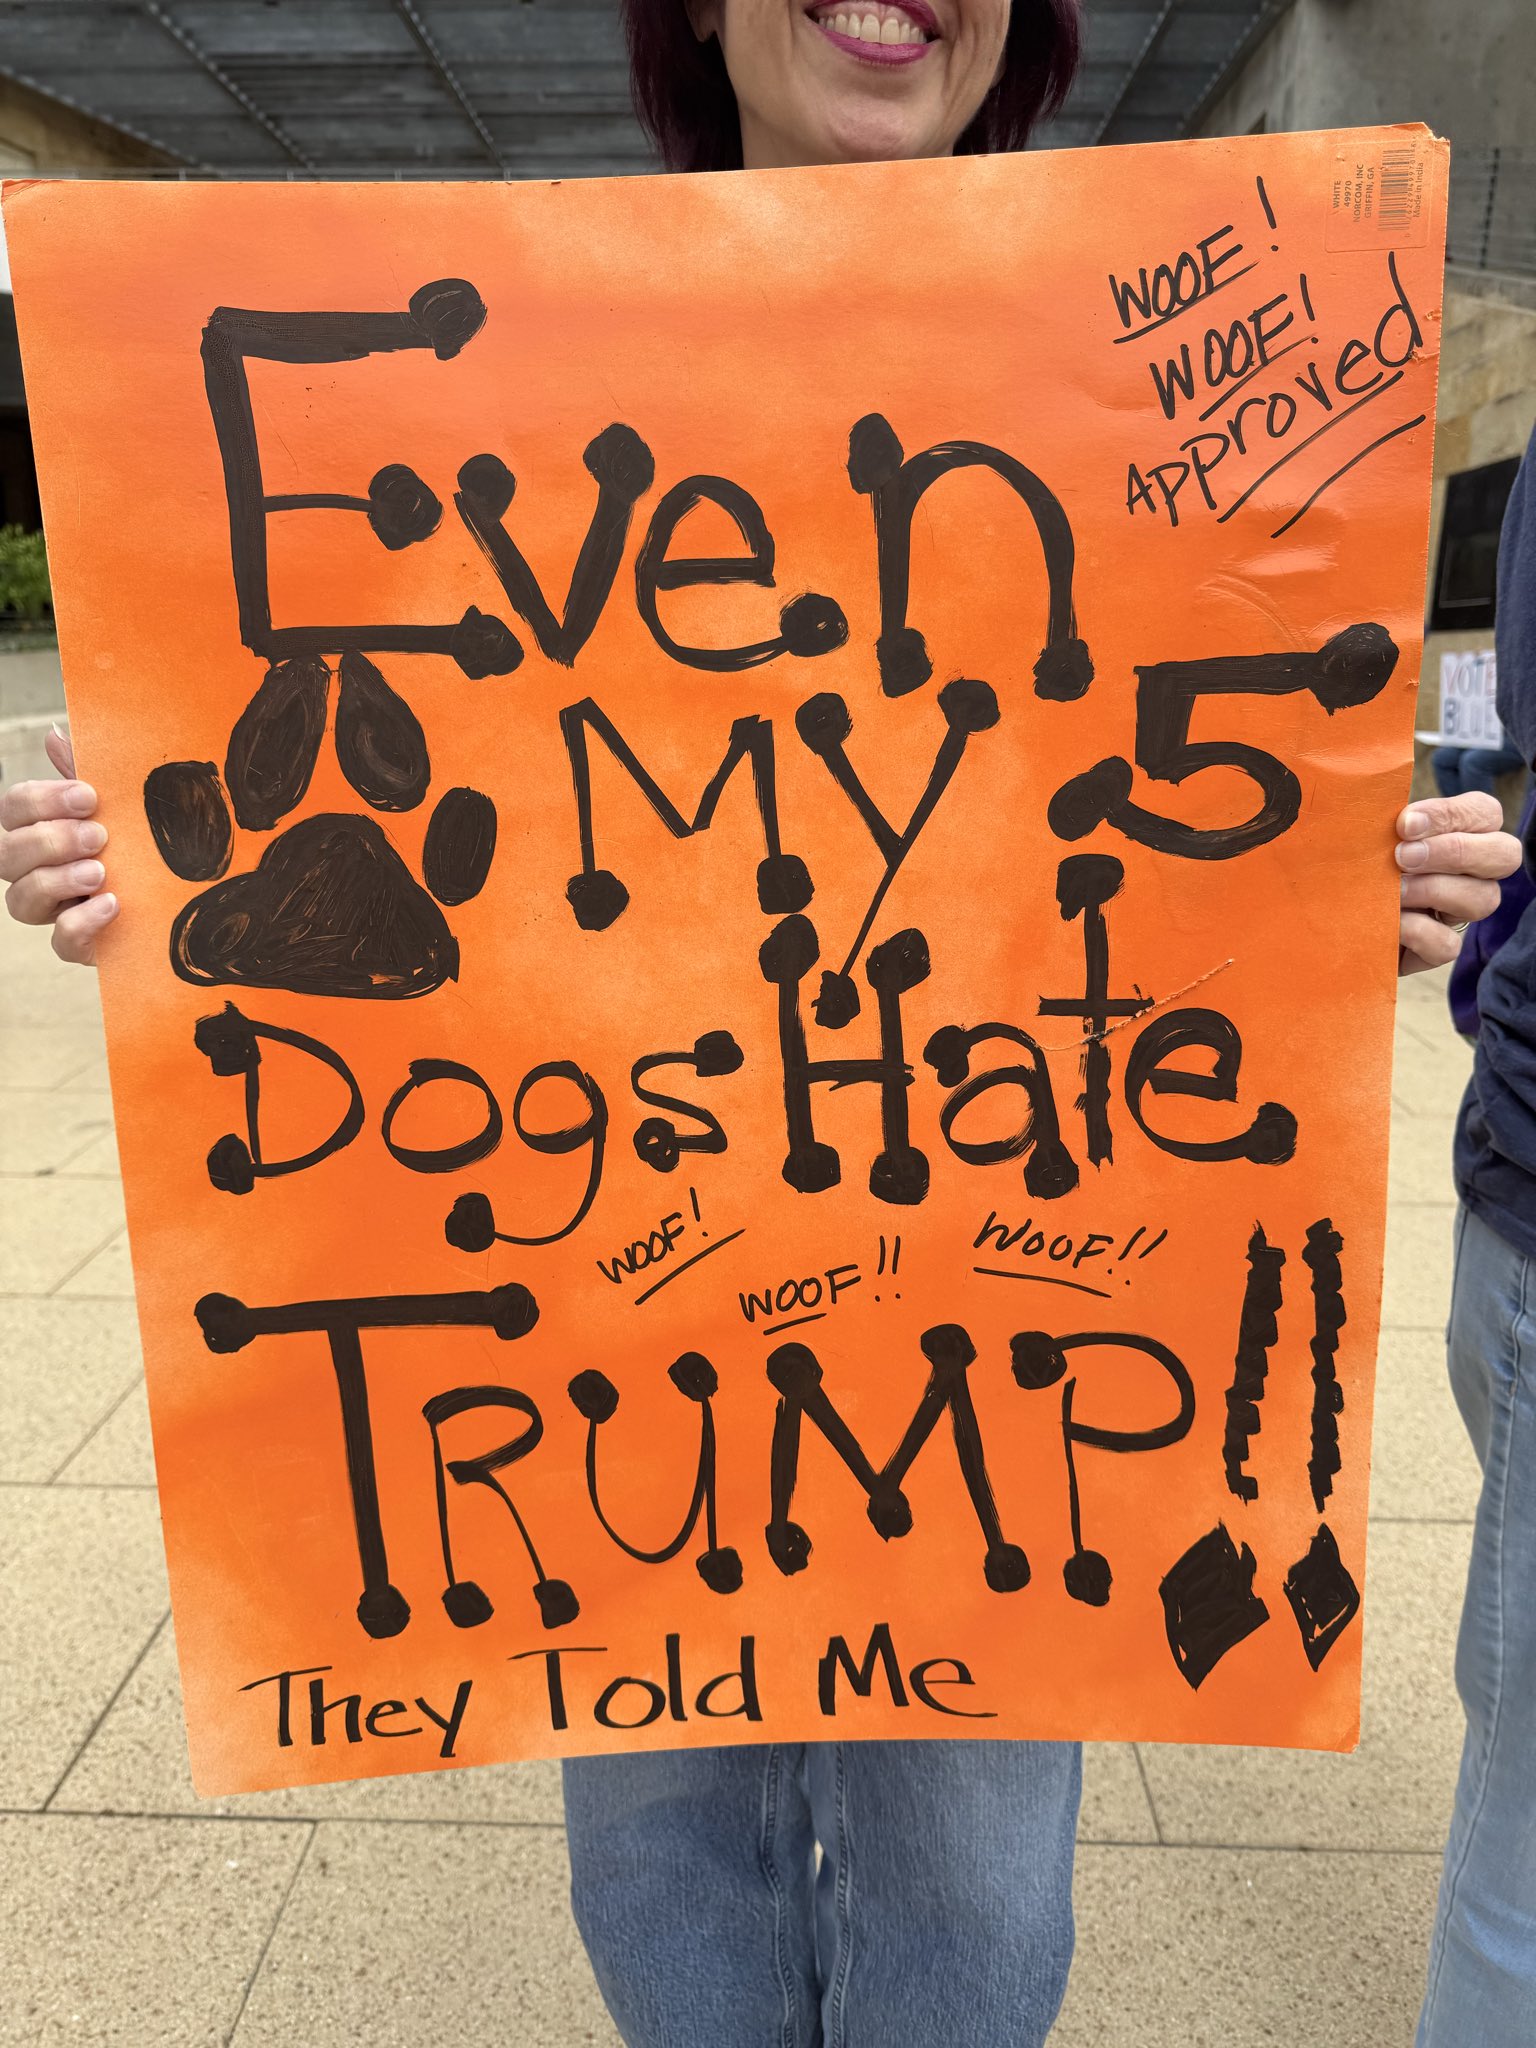 WHITE
49970
NORCOM, INC
GRIFFIN, GA
Made in India
WOOF!
WOOF!
Approved
Even
My 5
Dogs Hate
WOOF!
WOOF!!
WOOF!!
TRUMP!!
They Told Me
VOTE
BLUE